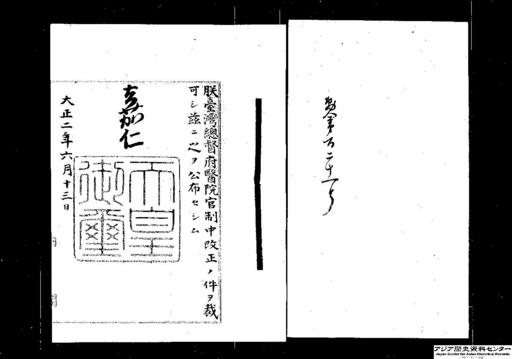 勅令第百二十一号
朕臺灣總督府醫院官制中改正ノ件ヲ裁
可シ茲ニ之ヲ公布セシム
嘉仁
天皇御璽
大正二年六月十三日
アジア歴史資料センター
Japan Center for Asian Historical Records